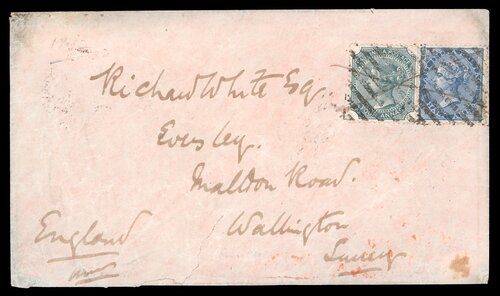 Richard White Esq.
Eversley.
Malldon Road.
Wallington
Surrey
England